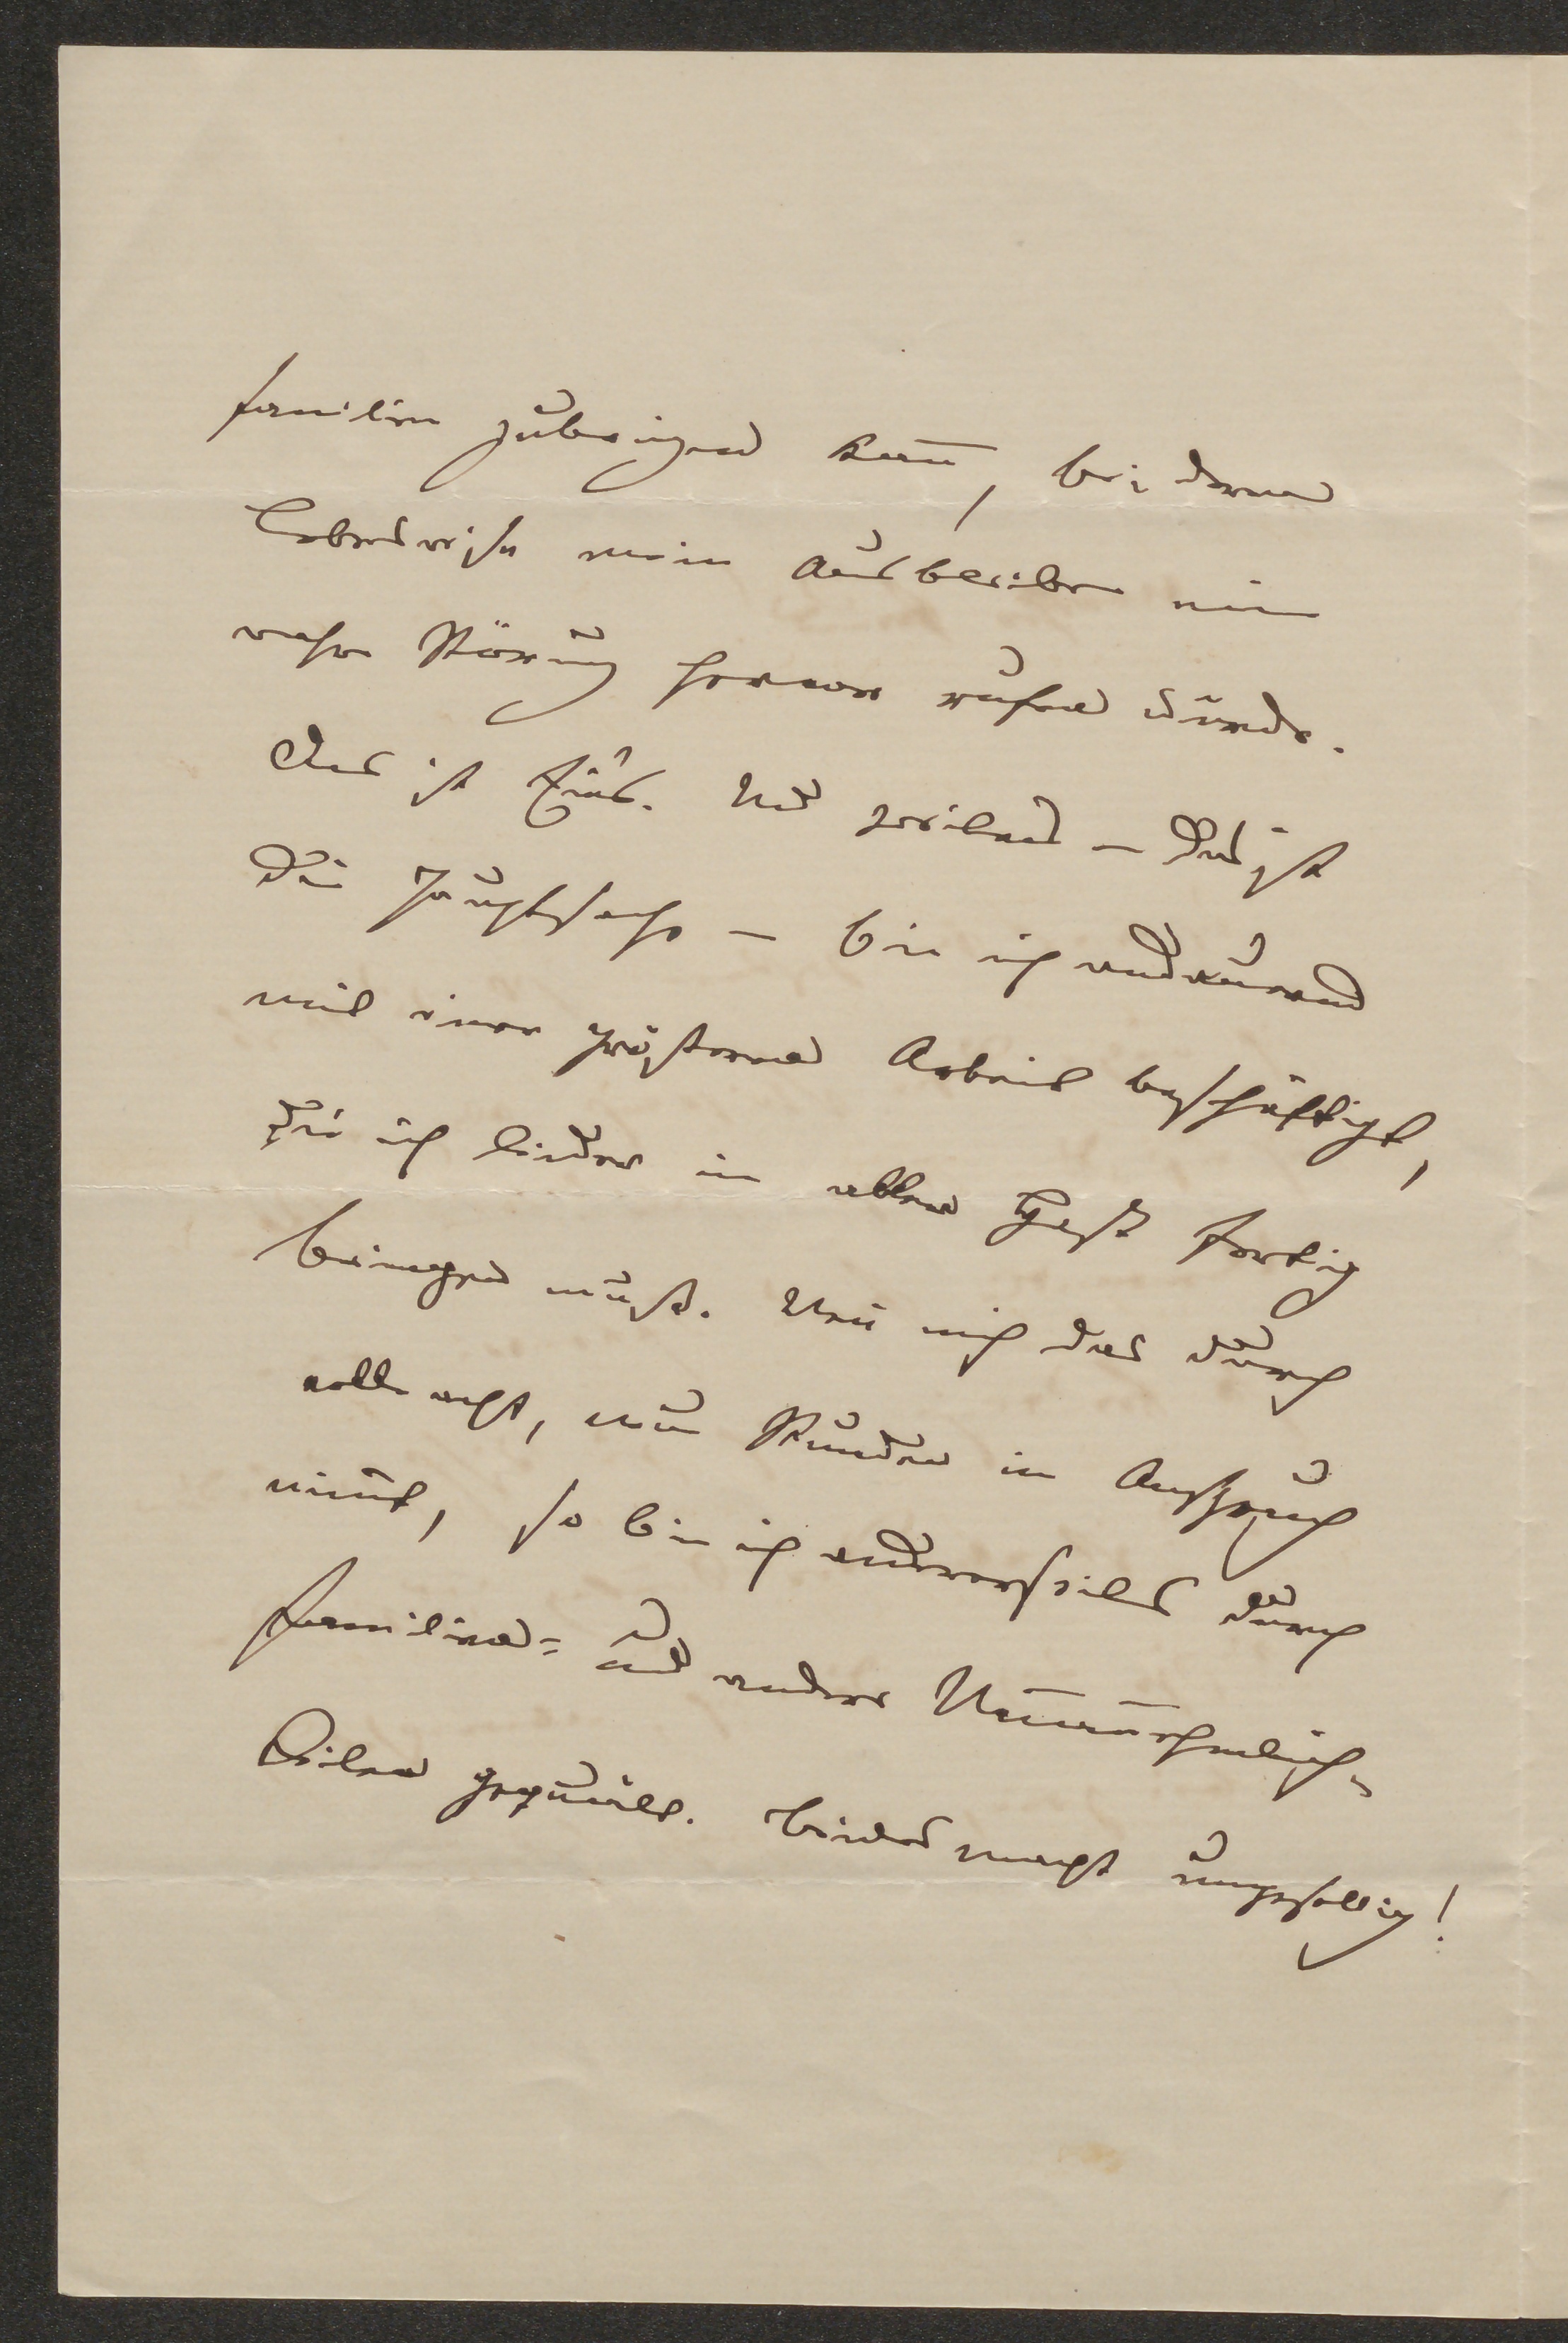 familien zubringen kann̄, bei deren
Lebensweise mein Ausbleiben eine
wahre Störung hervor rufen würde.
Das ist Eins. Und zweitens – das ist
die Hauptsache – bin ich andauernd
mit einer größeren Arbeit beschäftigt,
die ich leider in aller Hast fertig
bringen muß. Wenn̄ mich das durch
acht, neun Stunden in Anspruch
nim̄t, so bin ich andererseits durch
Familien= und andere Unan̄ehmlich-
keiten gequält. Beides macht ungesellig!